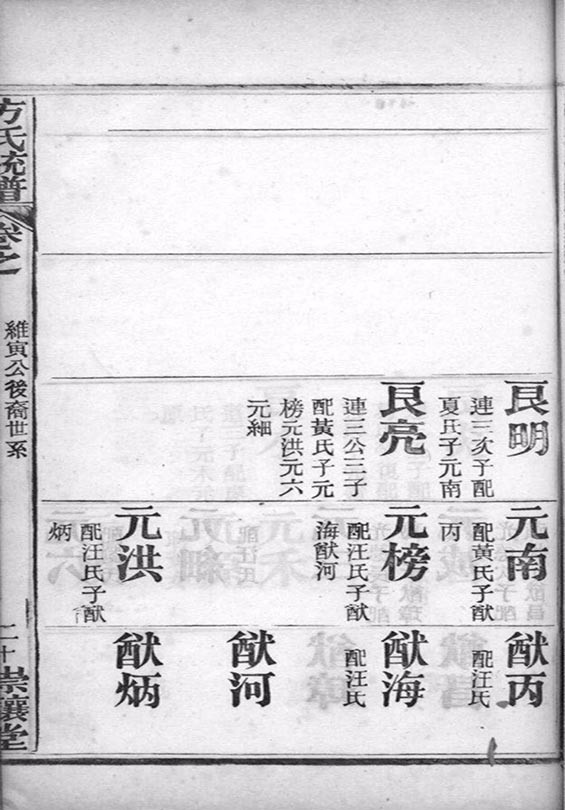 良明
連三次子配
夏氏子元南
良亮
連三公三子
配黃氏子元
榜元洪元六
元細
元南
配黃氏子猷
丙
元榜
配汪氏子猷
海猷河
元洪
配汪氏子猷
炳
猷丙
配汪氏
猷海
配汪氏
猷河
猷炳
方氏統譜
卷之
維寅公後裔世系
二十
崇讓堂